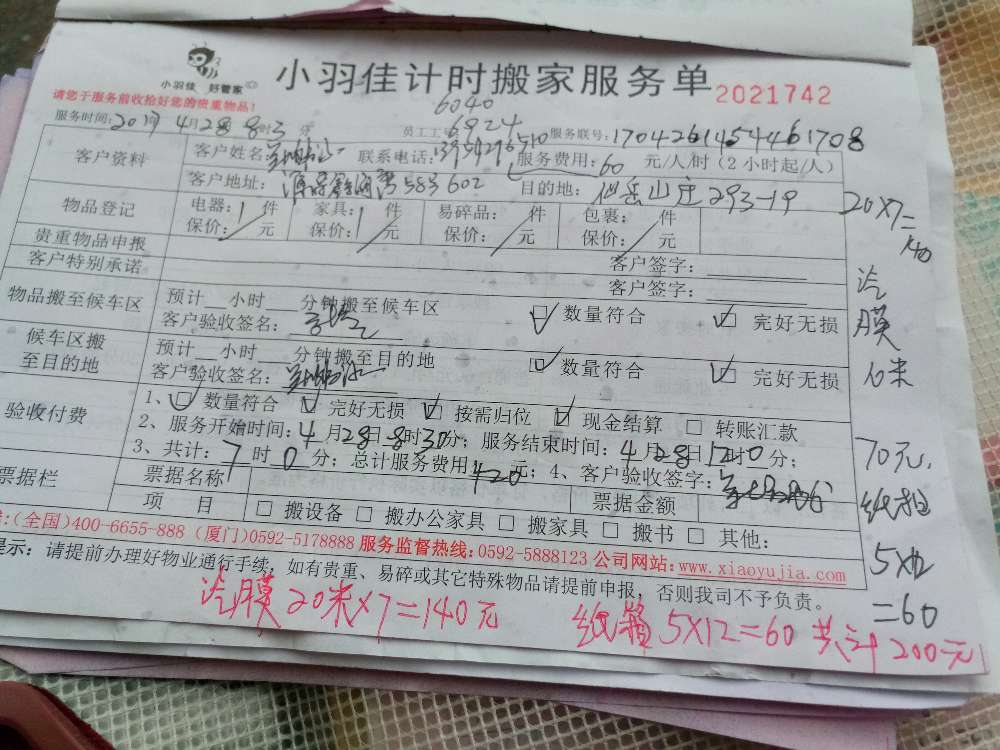 小羽佳 好管家
小羽佳计时搬家服务单 2021742
请您于服务前收拾好您的贵重物品!
6040
服务时间:2017年4月28日8时30分 员工工号 6924 服务联号:1704261454461708
客户资料 客户姓名: 联系电话: 服务费用:60 元/人/时(2小时起/人)
客户地址: 583号602 目的地:仙岳山庄293-19
物品登记 电器:1件 家具:1件 易碎品: 件 包裹: 件
保价: 元 保价: 元 保价: 元 保价: 元
贵重物品申报 客户签字:
客户特别承诺 客户签字:
物品搬至候车区 预计 小时 分钟搬至候车区 ☑ 数量符合 ☑ 完好无损
客户验收签名:
候车区搬至目的地 预计 小时 分钟搬至目的地 ☑ 数量符合 ☑ 完好无损
客户验收签名:
验收付费 1、☑ 数量符合 ☑ 完好无损 ☑ 按需归位 ☑ 现金结算 □ 转账汇款
2、服务开始时间:4月28日8时30分;服务结束时间:4月28日12时0分;
3、共计:7时0分;总计服务费用420元;4、客户验收签字:
票据栏 票据名称 票据金额
项 目 □ 搬设备 □ 搬办公家具 □ 搬家具 □ 搬书 □ 其他:
(全国)400-6655-888 (厦门)0592-5178888 服务监督热线:0592-5888123 公司网站:www.xiaoyujia.com
提示:请提前办理好物业通行手续,如有贵重、易碎或其它特殊物品请提前申报,否则我司不予负责。
汽膜20米×7=140元 纸箱5×12=60 共计200元
20×7=
140
汽
膜
70元,
纸箱
5×12
=60